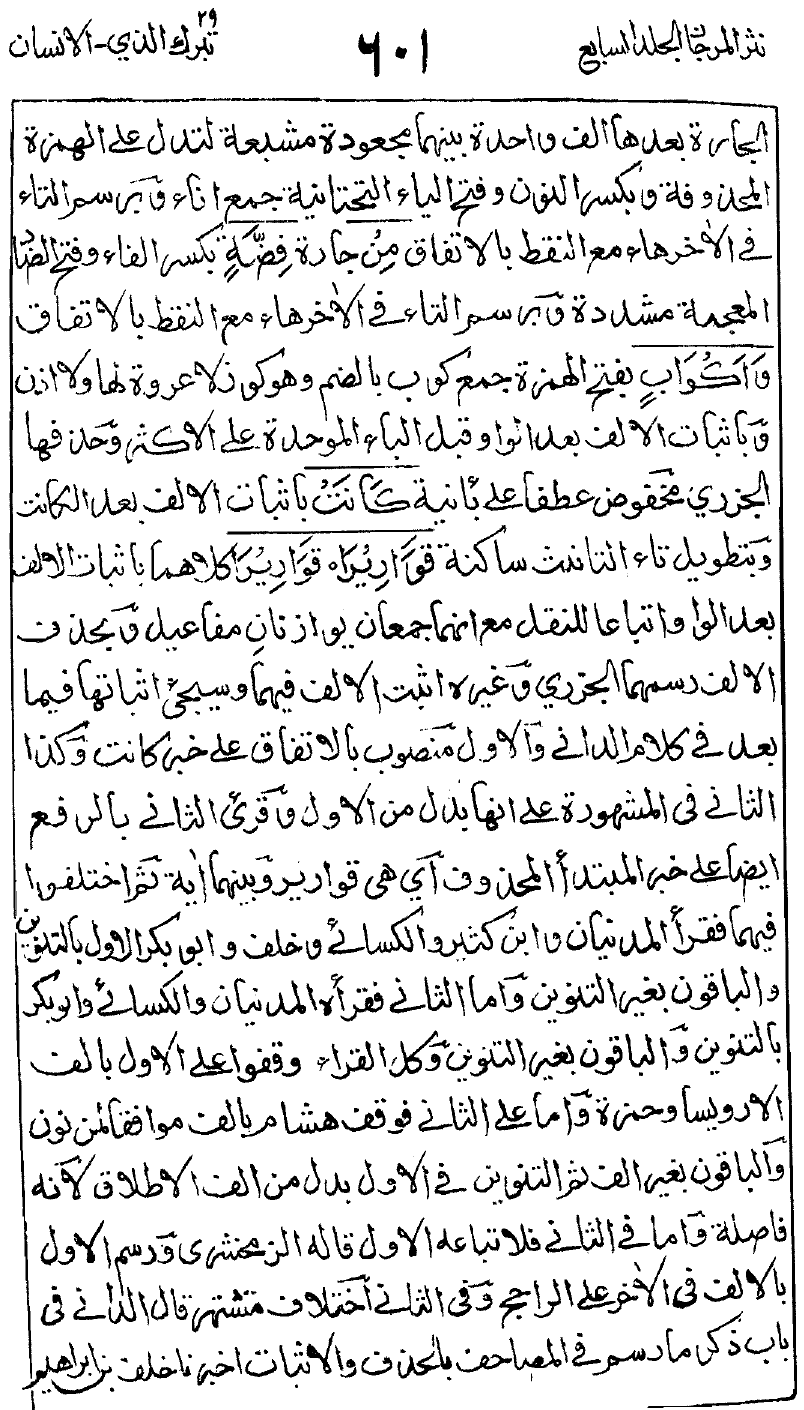 نثر المرجان الجلد السابع
٦٠١
٢٩
تبرك الذي - الانسان
الجارة بعدها الف واحدة بينهما مجعودة مشبعة لتدل على الهمزة
المحذوفة وَبكسر النون وفتح الياء التحتانية جمع اناء وَبرسم التاء
في الاٰخر هاء مع النقط بالاتفاق مِنْ جارة فِضَّةٍ بكسر الفاء وفتح الضاد
المعجمة مشددة وَبرسم التاء في الاٰخر هاء مع النقط بالاتفاق
وَاَكْوَابٍ بفتح الهمزة جمع كوب بالضم وهو كوز لا عروة لها ولا اذن
وَباثبات الالف بعد الواو قبل الباء الموحدة على الاكثر وَحذفها
الجزري مخفوض عطفا على بٰانية كَانَتْ باثبات الالف بعد الكانت
وَبتطويل تاء التانيث ساكنة قَوَارِيْرَاْ ہ قَوَارِيْرَاْ كلاهما باثبات الالف
بعد الواو اتباعا للنقل مع انهما جمعان يوازنان مفاعيل وَبحذف
الالف رسمهما الجزري وَغيره اثبت الالف فيهما وسيجئ اثباتها فيما
بعد في كلام الداني وَالاول منصوب بالاتفاق على خبر كانت وَكذا
الثاني في المشهورة على انها بدل من الاول وَقرئ الثاني بالرفع
ايضا على خبر المبتدأ المحذوف اَي هي قوارير وَبينهما اٰية ثم اختلفوا
فيهما فقرأ المدنيان وابن كثير والكسائي وخلف وابو بكر الاول بالتنوين
والباقون بغير التنوين وَاما الثاني فقرأه المدنيان والكسائي وابو بكر
بالتنوين وَالباقون بغير التنوين وَكل القراء وقفوا على الاول بالف
الا رويسا وحمزة وَاما على الثاني فوقف هشام بالف موافقا لمن نون
وَالباقون بغير الف ثم التنوين في الاول بدل من الف الاطلاق لاَنه
فاصلة وَاما في الثاني فلاتباعه الاول قاله الزمخشري وَرسم الاول
بالالف في الاٰخر على الراجح وَفي الثاني اَختلاف مشتهر قال الداني في
باب ذكر ما رسم في المصاحف بالحذف والاثبات اخبرنا خلف بن ابراهيم